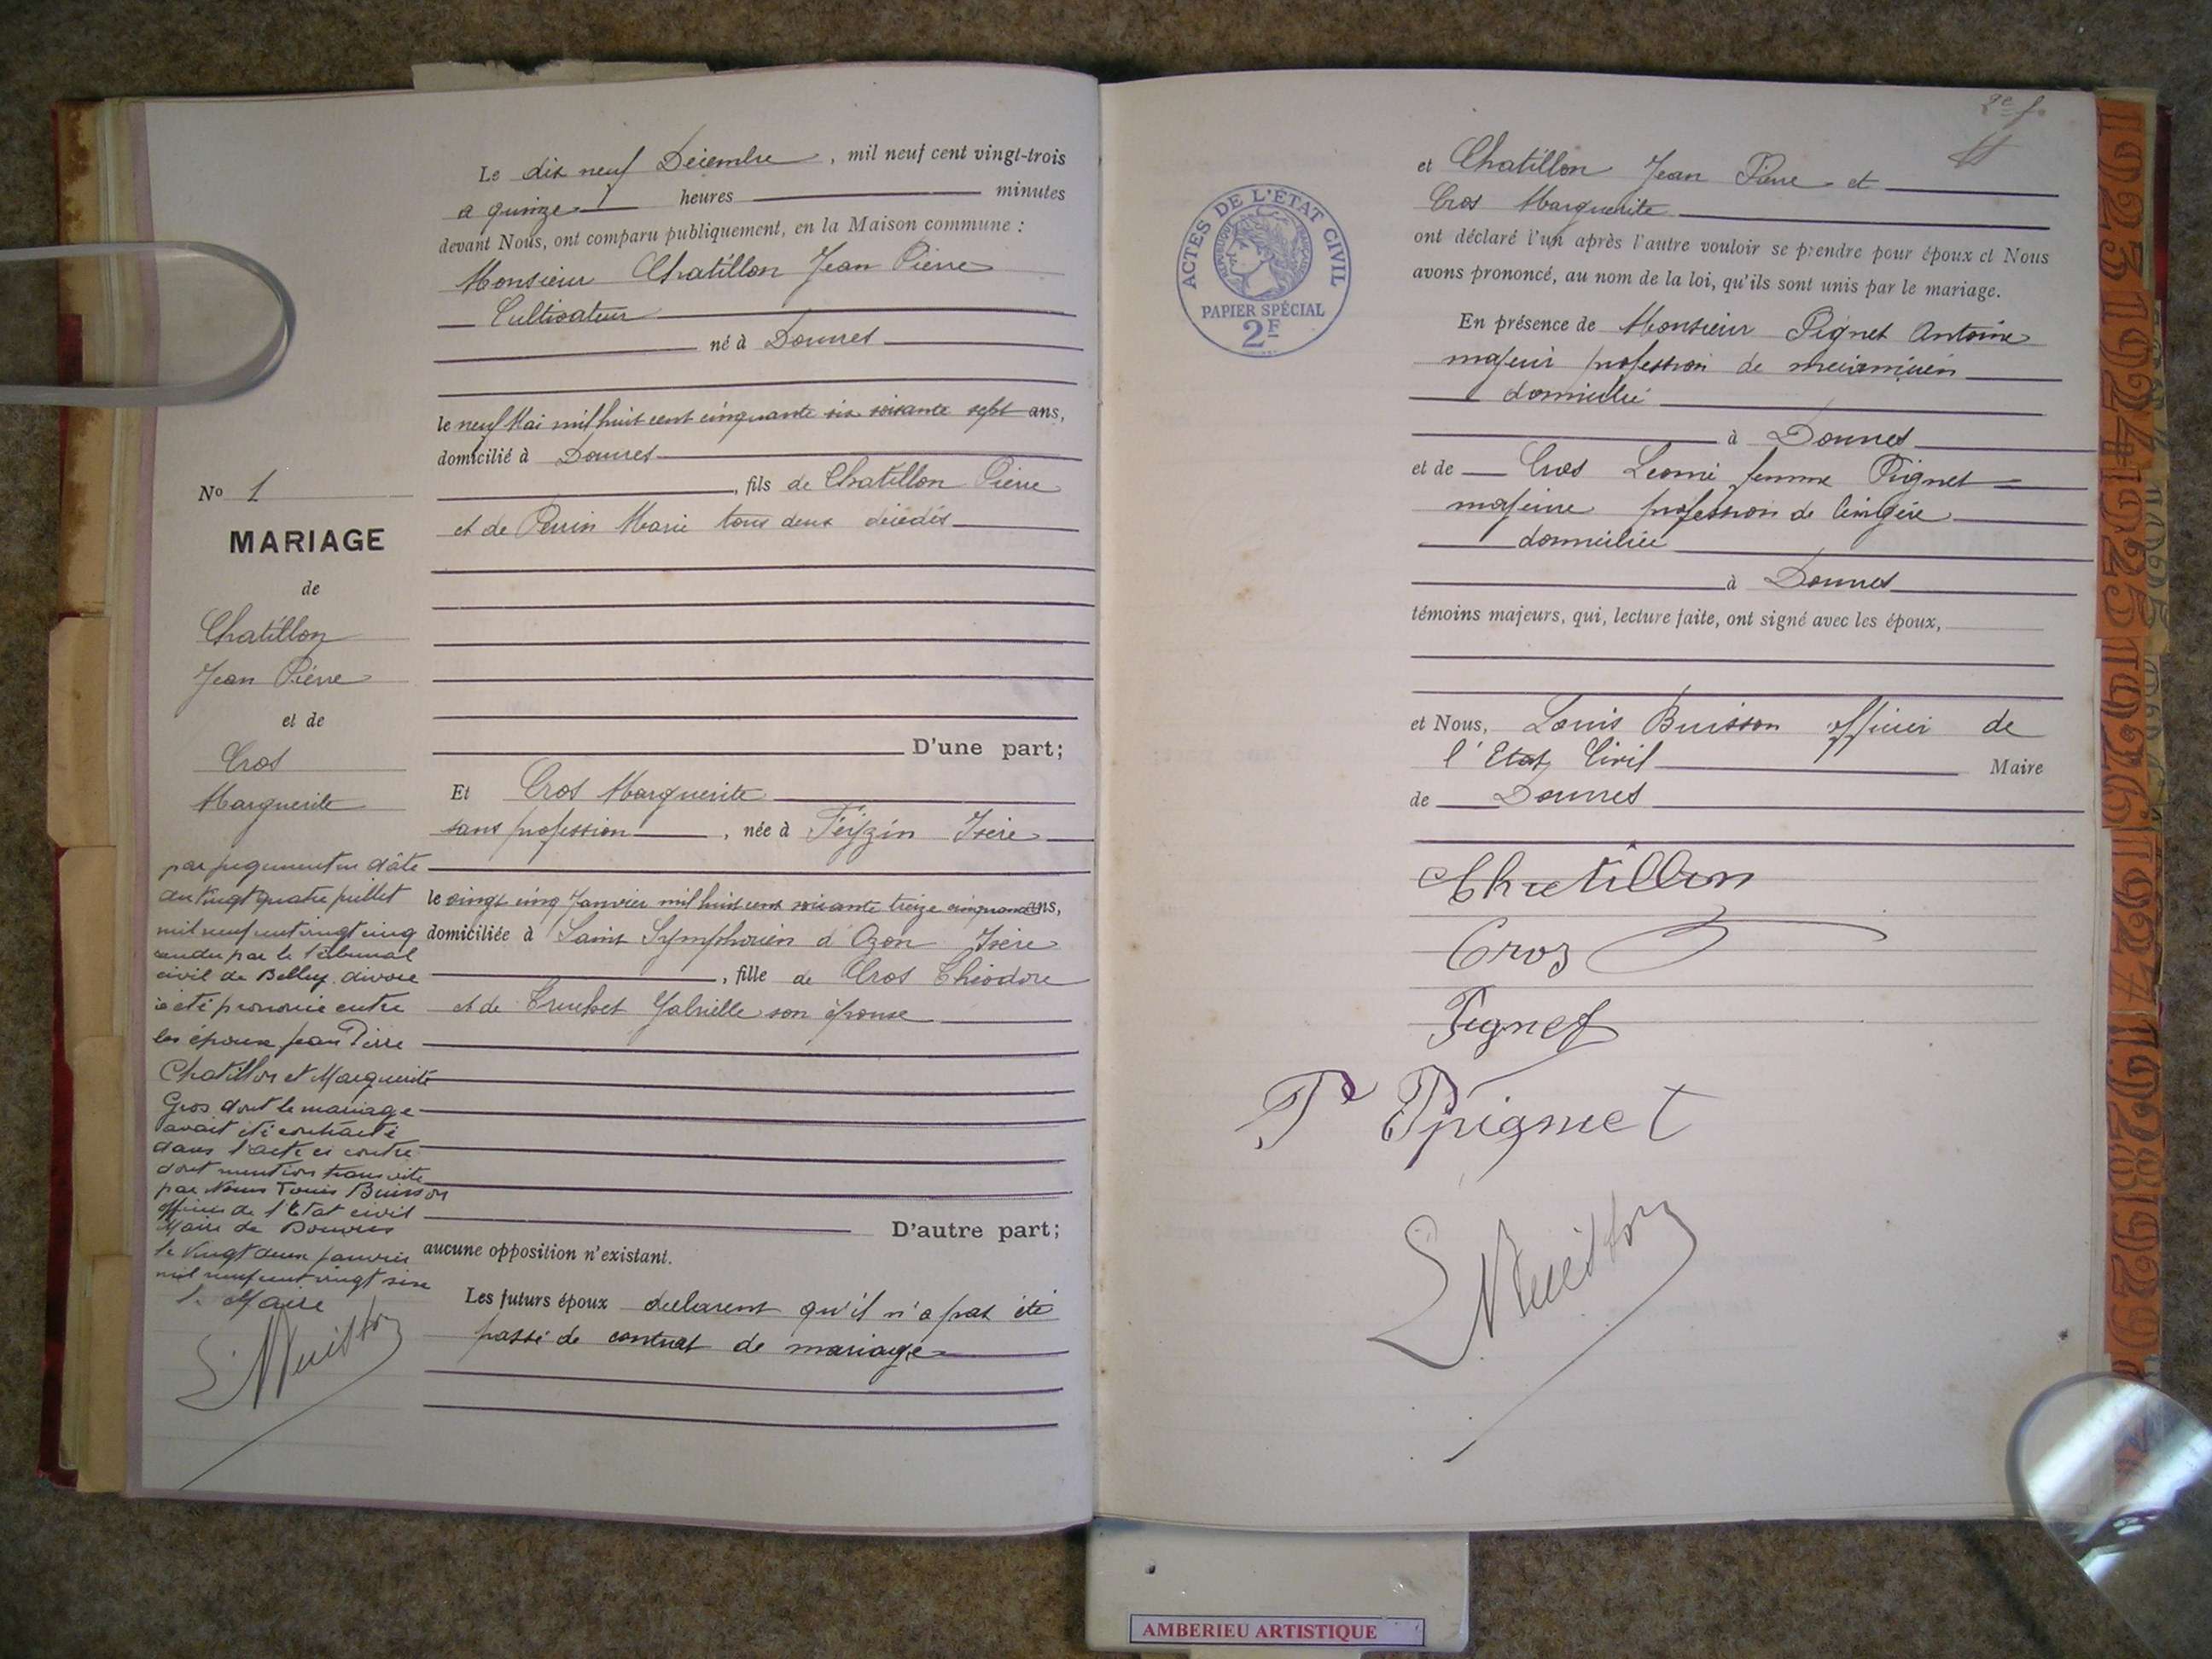 Le dix neuf Décembre, mil neuf cent vingt-trois
a quinze heures minutes
devant Nous, ont comparu publiquement, en la Maison commune :
Monsieur Chatillon Jean Pierre
Cultivateur
né à Douvres
le neuf Mai mil huit cent cinquante six soixante sept ans,
domicilié à Douvres
, fils de Chatillon Pierre
et de Perrin Marie tous deux décédés
D'une part;
Et Cros Marguerite
sans profession, née à Feyzin Isère
le vingt cinq Janvier mil huit cent soixante treize cinquante ans,
domiciliée à Saint Symphorien d'Ozon Isère
, fille de Cros Théodore
et de Gabrielle son épouse
D'autre part;
aucune opposition n'existant.
Les futurs époux déclarent qu'il n'a pas été
passé de contrat de mariage
No 1
MARIAGE
de
Chatillon
Jean Pierre
et de
Cros
Marguerite
par jugement en date
du vingt quatre juillet
mil neuf cent vingt cinq
rendu par le tribunal
civil de Belley divorce
a été prononcé entre
les époux Jean Pierre
Chatillon et Marguerite
Gros dont le mariage
avait été contracté
dans l'acte ci contre
dont mention transcrite
par Nous Louis Buisson
officier de l'Etat civil
Maire de Douvres
le vingt deux janvier
mil neuf cent vingt six
le Maire
L Buisson
ACTES DE L'ÉTAT CIVIL
RÉPUBLIQUE FRANÇAISE
PAPIER SPÉCIAL
2F
et Chatillon Jean Pierre et
Cros Marguerite
ont déclaré l'un après l'autre vouloir se prendre pour époux et Nous
avons prononcé, au nom de la loi, qu'ils sont unis par le mariage.
En présence de Monsieur Pignet Antoine
majeur profession de mécanicien
domicilié
à Douvres
et de Cros Léonie femme Pignet
majeure profession de lingère
domiciliée
à Douvres
témoins majeurs, qui, lecture faite, ont signé avec les époux,
et Nous, Louis Buisson officier de
l'Etat Civil Maire
de Douvres
Chatillon
Cros
Pignet
Pignet
L Buisson
1923 1924 1925 1926 1927 1928 1929
AMBERIEU ARTISTIQUE